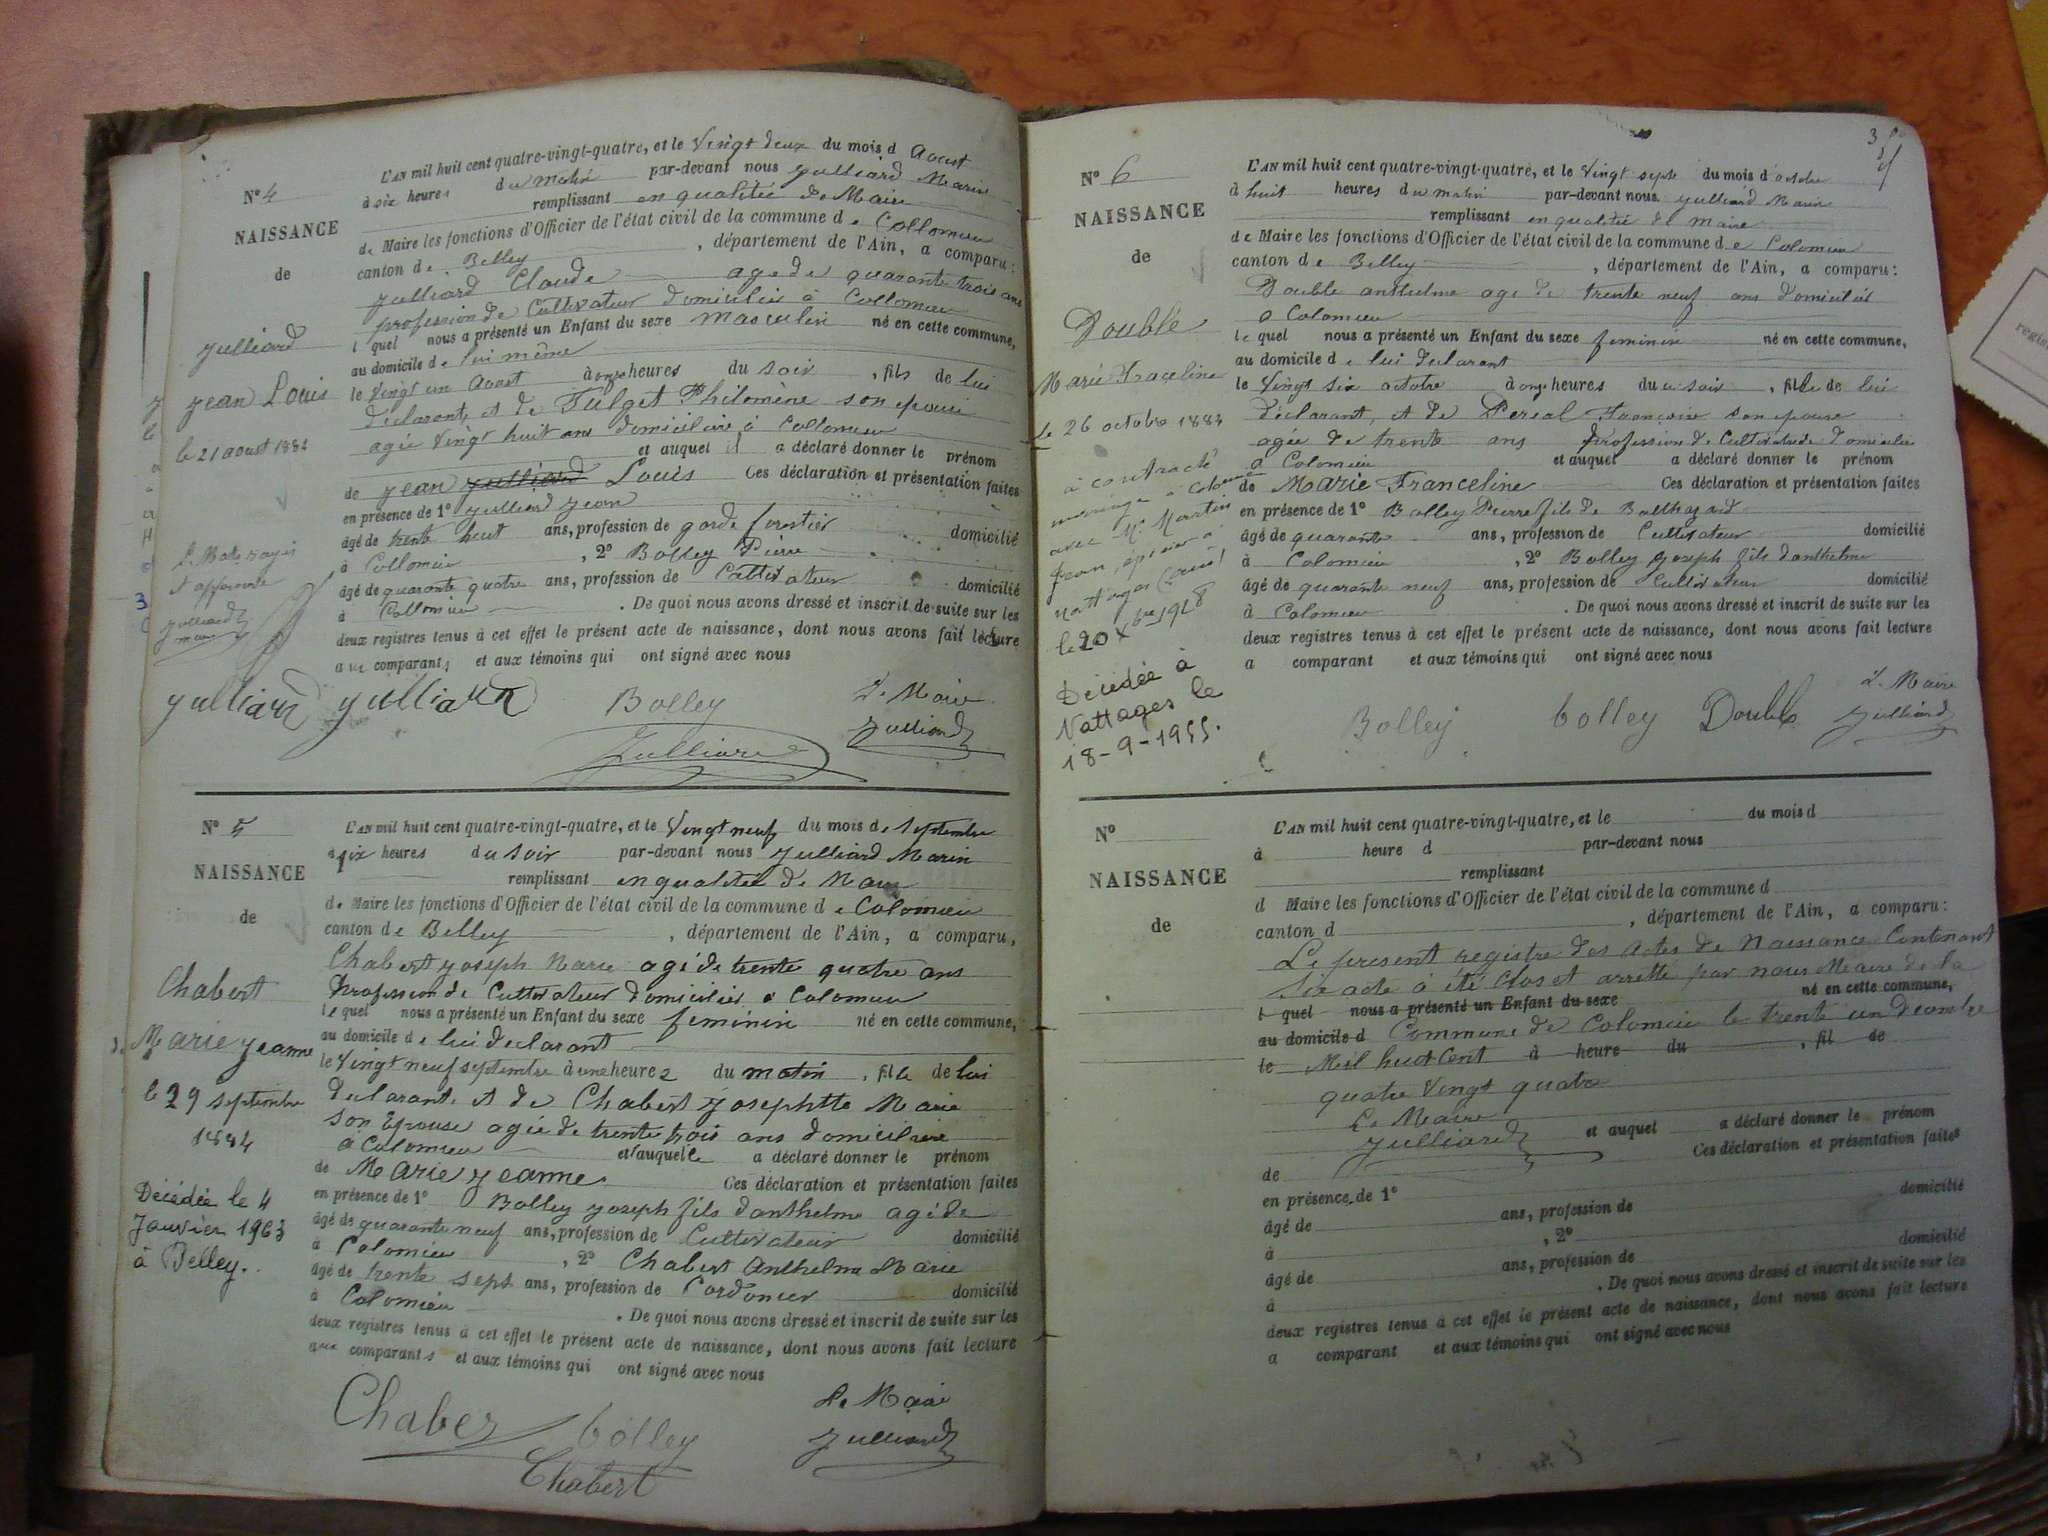 N° 4
NAISSANCE
de
Julliard
Jean Louis
le 21 aout 1884
Le Mot rayé
et approuvé
Julliard
maire
L'AN mil huit cent quatre-vingt-quatre, et le Vingt deux du mois d Aoust
à six heures du matin par-devant nous Julliard Marin
remplissant en qualitée de Maire
de Maire les fonctions d'Officier de l'état civil de la commune de Collomieu
canton de Belley, département de l'Ain, a comparu:
Julliard Claude age de quarante trois ans
profession de Cultivateur domicilié à Collomieu
l quel nous a présenté un Enfant du sexe masculin né en cette commune,
au domicile de lui même
le Vingt un Aoust à onze heures du soir, fils de lui
déclarant, et de Fulget Philomène son epouse
agée vingt huit ans domiciliée à Collomieu
et auquel il a déclaré donner le prénom
de Jean Julliard Louis Ces déclaration et présentation faites
en présence de 1° Julliard Jean
âgé de trente huit ans, profession de garde forestier domicilié
à Collomieu, 2° Bolley Pierre
âgé de quarante quatre ans, profession de Cultivateur domicilié
à Collomieu. De quoi nous avons dressé et inscrit de suite sur les
deux registres tenus à cet effet le présent acte de naissance, dont nous avons fait lecture
aux comparants et aux témoins qui ont signé avec nous
Julliard Julliard Bolley Le Maire
Julliard Julliard
N° 5
NAISSANCE
de
Chabert
Marie Jeanne
le 29 septembre
1884
Décédée le 4
Janvier 1963
à Belley.
L'AN mil huit cent quatre-vingt-quatre, et le Vingt neuf du mois de Septembre
à six heures du soir par-devant nous Julliard Marin
remplissant en qualitée de Maire
de Maire les fonctions d'Officier de l'état civil de la commune de Colomieu
canton de Belley, département de l'Ain, a comparu,
Chabert Joseph Marie agé de trente quatre ans
Profession de Cultivateur domicilier a Colomieu
le quel nous a présenté un Enfant du sexe feminin né en cette commune,
au domicile de lui declarant
le Vingt neuf septembre à une heures du matin, fille de lui
declarant, et de Chabert Josephtte Marie
son Epouse agée de trente trois ans domiciliée
à Colomieu et auquelle a déclaré donner le prénom
de Marie Jeanne Ces déclaration et présentation faites
en présence de 1° Bolley Joseph fils d'anthelme agé de
âgé de quarante neuf ans, profession de Cultivateur domicilié
à Colomieu, 2° Chabert Anthelme Marie
âgé de trente sept ans, profession de Cordonier domicilié
à Colomieu. De quoi nous avons dressé et inscrit de suite sur les
deux registres tenus à cet effet le présent acte de naissance, dont nous avons fait lecture
aux comparants et aux témoins qui ont signé avec nous
Chaber Bolley Le Maire
Chabert Julliard
3
N° 6
NAISSANCE
de
Double
Marie Franceline
Le 26 octobre 1884
a contracté
mariage à Colomieu
avec Mr Martin
Jean, épicier à
Nattages
le 20 Xbre 1918
Décédée à
Nattages le
18-9-1955.
L'AN mil huit cent quatre-vingt-quatre, et le Vingt septe du mois d'octobre
à huit heures du matin par-devant nous Julliard Marin
remplissant en qualitée de maire
de Maire les fonctions d'Officier de l'état civil de la commune de Colomieu
canton de Belley, département de l'Ain, a comparu:
Double anthelme age de trente neuf ans domicilié
a Colomieu
le quel nous a présenté un Enfant du sexe feminin né en cette commune,
au domicile de lui declarant
le Vingt six octobre à onze heures du soir, fille de lui
déclarant, et de Pereal Françoise son epouse
agée de trente ans Profession de Cultivateur domicilié
a Colomieu et auquel a déclaré donner le prénom
de Marie Franceline Ces déclaration et présentation faites
en présence de 1° Bolley Pierre fils de Balthazard
âgé de quarante ans, profession de Cultivateur domicilié
à Colomieu, 2° Bolley Joseph fils d'anthelme
âgé de quarante neuf ans, profession de Cultivateur domicilié
à Colomieu. De quoi nous avons dressé et inscrit de suite sur les
deux registres tenus à cet effet le présent acte de naissance, dont nous avons fait lecture
a comparant et aux témoins qui ont signé avec nous
Bolley Bolley Double Le Maire
Julliard
N°
NAISSANCE
de
L'AN mil huit cent quatre-vingt-quatre, et le du mois d
à heure d par-devant nous
remplissant
d Maire les fonctions d'Officier de l'état civil de la commune d
canton d, département de l'Ain, a comparu:
Le present registre des Actes de Naissance Contenant
Six acte à été Clos et arrette par nous Maire de la
l quel nous a présenté un Enfant du sexe né en cette commune,
au domicile d Commune de Colomieu le trente un Decembre
le Mil huit Cent à heure du, fil de
quatre Vingt quatre
Le Maire
Julliard et auquel a déclaré donner le prénom
de Ces déclaration et présentation faites
en présence de 1°
âgé de ans, profession de domicilié
à, 2°
âgé de ans, profession de domicilié
à. De quoi nous avons dressé et inscrit de suite sur les
deux registres tenus à cet effet le présent acte de naissance, dont nous avons fait lecture
a comparant et aux témoins qui ont signé avec nous